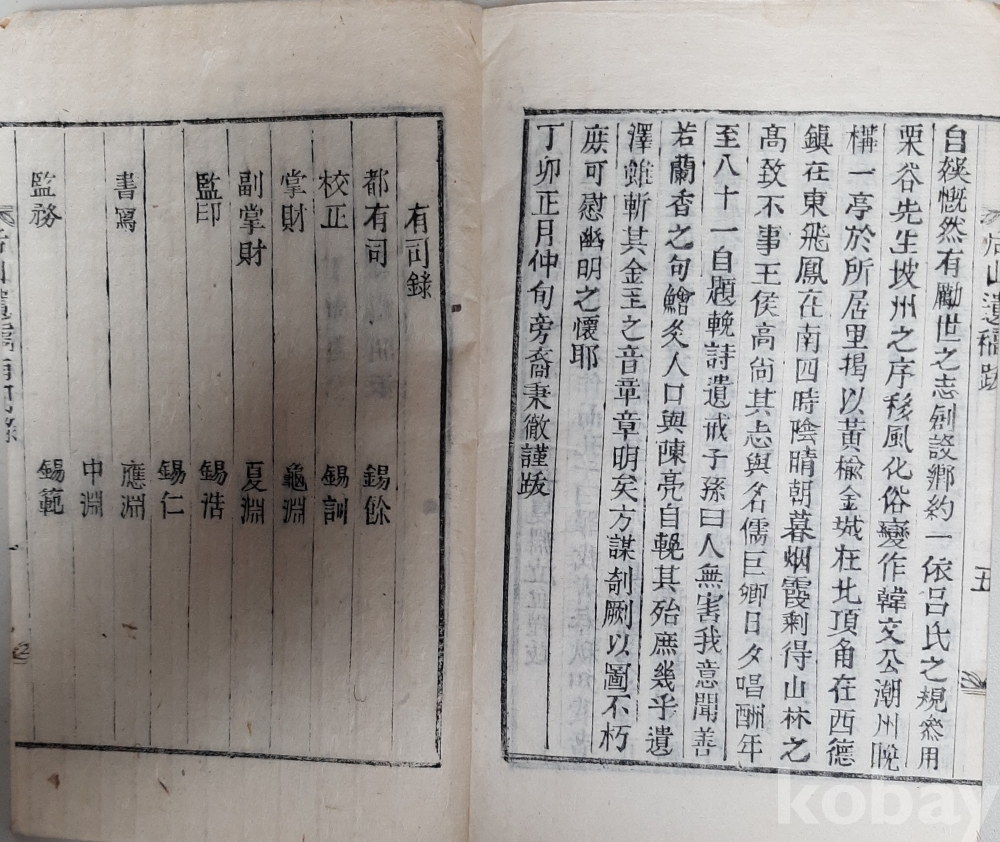 遺稿跋
五
自嘆慨然有勵世之志創設鄕約一依呂氏之規參用
栗谷先生坡州之序移風化俗變作韓文公潮州晩
構一亭於所居里揭以黃楡金城在北項角在西德
鎭在東飛鳳在南四時陰晴朝暮烟霞剩得山林之
高致不事王侯高尙其志與名儒巨卿日夕唱酬年
至八十一自題輓詩遺戒子孫曰人無害我意聞善
若蘭香之句鱠炙人口與陳亮自輓其殆庶幾乎遺
澤雖斬其金玉之音章章明矣方謀剞劂以圖不朽
庶可慰幽明之懷耶
丁卯正月仲旬旁裔秉徹謹跋
有司錄
都有司 錫餘
校正 錫訓
掌財 龜淵
副掌財 夏淵
監印 錫浩
錫仁
書寫 應淵
中淵
監務 錫範
kobay